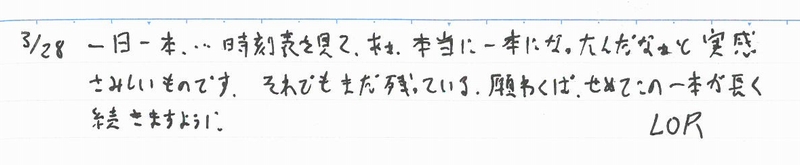 3/28 一日一本、… 時刻表を見て、あぁ、本当に一本になったんだなぁと実感
さみしいものです。それでもまだ残っている。願わくば、せめてこの一本が長く
続きますように。
LOR